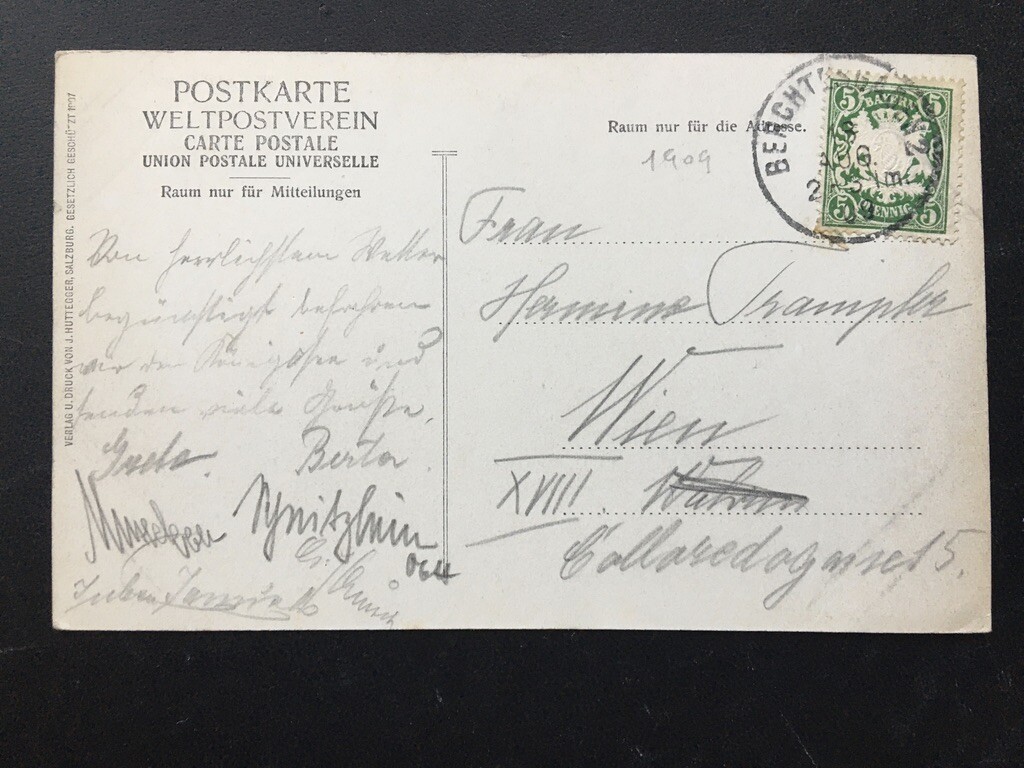 POSTKARTE
WELTPOSTVEREIN
CARTE POSTALE
UNION POSTALE UNIVERSELLE
Raum nur für Mitteilungen
VERLAG U. DRUCK VON J. HUTTEGGER, SALZBURG. GESETZLICH GESCHÜTZT 1907
Von herrlichstem Wetter
begünstigt befahren
wir den Königssee und
senden viele Grüße.
Grete. Berta.
064
Raum nur für die Adresse.
1909
BAYERN
5 5
5 PFENNIG 5
Frau
Hermine Trampler
Wien
XVIII.
Colloredogasse 15.